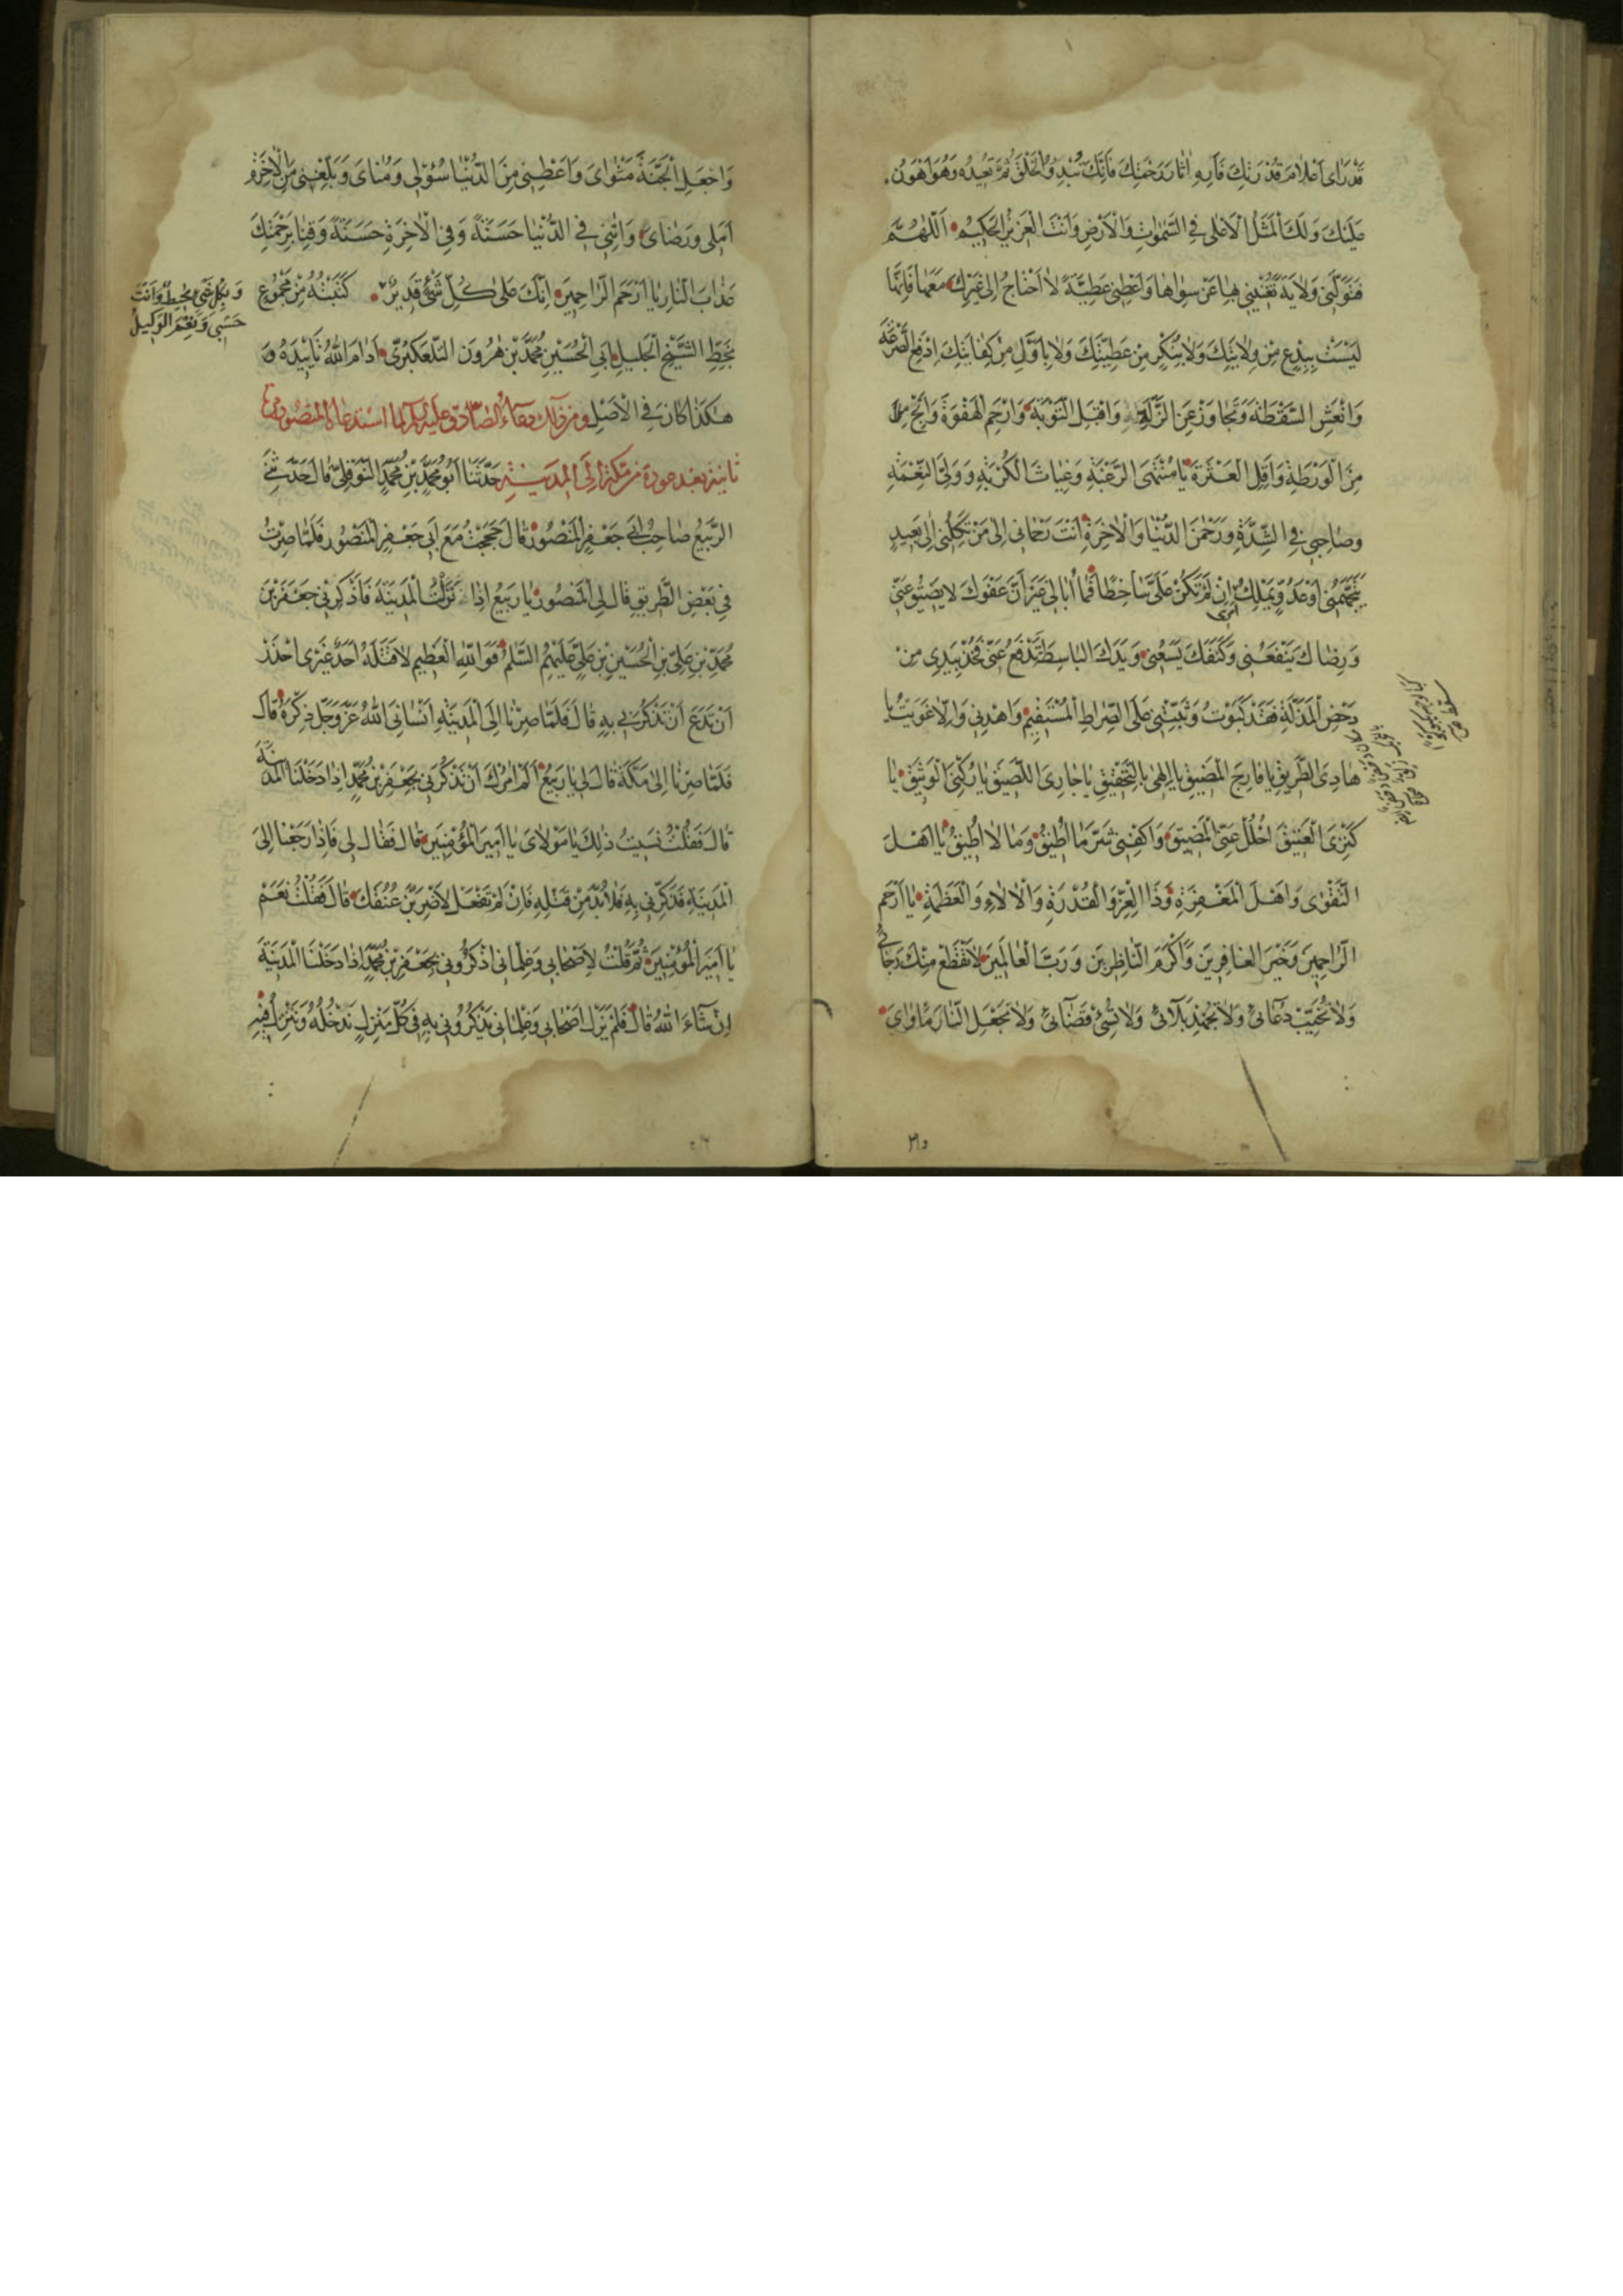 قَدْ رَاٰى اَعْلَامَ قُدْرَتِكَ فَاَرِهِ اٰثَارَ رَحْمَتِكَ فَاِنَّكَ تُبْدِئُ الْخَلْقَ ثُمَّ تُعِيدُهُ وَهُوَ اَهْوَنُ
عَلَيْكَ وَلَكَ الْمَثَلُ الْاَعْلٰى فِي السَّمٰوَاتِ وَالْاَرْضِ وَاَنْتَ الْعَزِيزُ الْحَكِيمُ اَللّٰهُمَّ
فَتَوَلَّنِي وَلَايَةً تُغْنِينِي بِهَا عَنْ سِوَاهَا وَاَعْطِنِي عَطِيَّةً لَا اَحْتَاجُ اِلٰى غَيْرِكَ مَعَهَا فَاِنَّهَا
لَيْسَتْ بِبِدْعٍ مِنْ وِلَايَتِكَ وَلَا بِنُكْرٍ مِنْ عَطِيَّتِكَ وَلَا بِاَوَّلِ مِنْ كِفَايَتِكَ اِدْفَعِ الصَّرْعَةَ
وَانْعَشِ السَّقْطَةَ وَتَجَاوَزْ عَنِ الزَّلَّةِ وَاقْبَلِ التَّوْبَةَ وَارْحَمِ الْهَفْوَةَ وَانْجِ
مِنَ الْوَرْطَةِ وَاَقِلِ الْعَثْرَةَ يَا مُنْتَهَى الرَّغْبَةِ وَغِيَاثَ الْكُرْبَةِ وَوَلِيَّ النِّعْمَةِ
وَصَاحِبِي فِي الشِّدَّةِ وَرَحْمٰنَ الدُّنْيَا وَالْاٰخِرَةِ اَنْتَ رَحْمَانِي اِلٰى مَنْ تَكِلُنِي اِلٰى بَعِيدٍ
يَتَجَهَّمُنِي اَوْ عَدُوٍّ يَمْلِكُ اَمْرِي اِنْ لَمْ تَكُنْ عَلَيَّ سَاخِطًا فَمَا اُبَالِي غَيْرَ اَنَّ عَفْوَكَ لَا يَضِيقُ عَنِّي
وَرِضَاكَ يَنْفَعُنِي وَكَنَفَكَ يَسَعُنِي وَيَدَكَ الْبَاسِطَةَ تَدْفَعُ عَنِّي فَخُذْ بِيَدِي مِنْ
دَحْضِ الْمَذَلَّةِ فَقَدْ كَبَوْتُ وَثَبِّتْنِي عَلَى الصِّرَاطِ الْمُسْتَقِيمِ وَاهْدِنِي وَاِلَّا غَوَيْتُ يَا
هَادِيَ الطَّرِيقِ يَا فَارِجَ الْمَضِيقِ يَا اِلٰهِي بِالتَّحْقِيقِ يَا جَارِيَ اللَّصِيقَ يَا رُكْنِيَ الْوَثِيقَ يَا
كَنْزِيَ الْعَتِيقَ احْلُلْ عَنِّي الْمَضِيقَ وَاكْفِنِي شَرَّ مَا اُطِيقُ وَمَا لَا اُطِيقُ يَا اَهْلَ
التَّقْوٰى وَاَهْلَ الْمَغْفِرَةِ وَذَا الْعِزِّ وَالْقُدْرَةِ وَالْاٰلَاءِ وَالْعَظَمَةِ يَا اَرْحَمَ
الرَّاحِمِينَ وَخَيْرَ الْغَافِرِينَ وَاَكْرَمَ النَّاظِرِينَ وَرَبَّ الْعَالَمِينَ لَا تَقْطَعْ مِنْكَ رَجَائِي
وَلَا تُخَيِّبْ دُعَائِي وَلَا تُجْهِدْ بَلَائِي وَلَا تُسِئْ قَضَائِي وَلَا تَجْعَلِ النَّارَ مَاْوَايَ
وَاجْعَلِ الْجَنَّةَ مَثْوَايَ وَاَعْطِنِي مِنَ الدُّنْيَا سُؤْلِي وَمُنَايَ وَبَلِّغْنِي مِنَ الْاٰخِرَةِ
اَمَلِي وَرِضَايَ وَاٰتِنِي فِي الدُّنْيَا حَسَنَةً وَفِي الْاٰخِرَةِ حَسَنَةً وَقِنَا بِرَحْمَتِكَ
عَذَابَ النَّارِ يَا اَرْحَمَ الرَّاحِمِينَ اِنَّكَ عَلٰى كُلِّ شَيْءٍ قَدِيرٌ كَتَبْتُهُ مِنْ مَجْمُوعٍ
وَبِكُلِّ شَيْءٍ مُحِيطٌ وَاَنْتَ
حَسْبِي وَنِعْمَ الْوَكِيلُ
بِخَطِّ الشَّيْخِ الْجَلِيلِ اَبِي الْحُسَيْنِ مُحَمَّدِ بْنِ هٰرُونَ التَّلَّعُكْبَرِيِّ اَدَامَ اللّٰهُ تَاْيِيدَهُ
هٰكَذَا كَانَ فِي الْاَصْلِ وَمِنْ ذٰلِكَ دُعَاءُ الصَّادِقِ عَلَيْهِ السَّلَامُ لَمَّا اسْتَدْعَاهُ الْمَنْصُورُ مَرَّةً
ثَانِيَةً بَعْدَ عَوْدِهِ مِنْ مَكَّةَ اِلَى الْمَدِينَةِ حَدَّثَنَا اَبُو مُحَمَّدِ بْنِ مُحَمَّدٍ النَّوْفَلِيُّ قَالَ حَدَّثَنِي
الرَّبِيعُ صَاحِبُ اَبِي جَعْفَرٍ الْمَنْصُورِ قَالَ حَجَجْتُ مَعَ اَبِي جَعْفَرٍ الْمَنْصُورِ فَلَمَّا صِرْتُ
فِي بَعْضِ الطَّرِيقِ قَالَ لِيَ الْمَنْصُورُ يَا رَبِيعُ اِذَا نَزَلْتُ الْمَدِينَةَ فَاذْكُرْ لِي جَعْفَرَ بْنَ
مُحَمَّدِ بْنِ عَلِيِّ بْنِ الْحُسَيْنِ بْنِ عَلِيٍّ عَلَيْهِمُ السَّلٰمُ فَوَاللّٰهِ الْعَظِيمِ لَا قَتَلَهُ اَحَدٌ غَيْرِي احْذَرْ
اَنْ تَدَعَ اَنْ تُذَكِّرَنِي بِهِ قَالَ فَلَمَّا صِرْنَا اِلَى الْمَدِينَةِ اَنْسَانِيَ اللّٰهُ عَزَّ وَجَلَّ ذِكْرَهُ قَالَ
فَلَمَّا صِرْنَا اِلٰى مَكَّةَ قَالَ لِي يَا رَبِيعُ اَلَمْ اٰمُرْكَ اَنْ تُذَكِّرَنِي بِجَعْفَرِ بْنِ مُحَمَّدٍ اِذَا دَخَلْنَا الْمَدِينَةَ
قَالَ فَقُلْتُ نَسِيتُ ذٰلِكَ يَا مَوْلَايَ يَا اَمِيرَ الْمُؤْمِنِينَ قَالَ فَقَالَ لِي فَاِذَا رَجَعْنَا اِلَى
الْمَدِينَةِ فَذَكِّرْنِي بِهِ فَلَا بُدَّ مِنْ قَتْلِهِ فَاِنْ لَمْ تَفْعَلْ لَاَضْرِبَنَّ عُنُقَكَ قَالَ فَقُلْتُ نَعَمْ
يَا اَمِيرَ الْمُؤْمِنِينَ ثُمَّ قُلْتُ لِاَصْحَابِي وَغِلْمَانِي اذْكُرُونِي بِجَعْفَرِ بْنِ مُحَمَّدٍ اِذَا دَخَلْنَا الْمَدِينَةَ
اِنْ شَاءَ اللّٰهُ قَالَ فَلَمْ يَزَلْ اَصْحَابِي وَغِلْمَانِي يَذْكُرُونِي بِهِ فِي كُلِّ مَنْزِلٍ نَدْخُلُهُ وَنَنْزِلُ فِيهِ